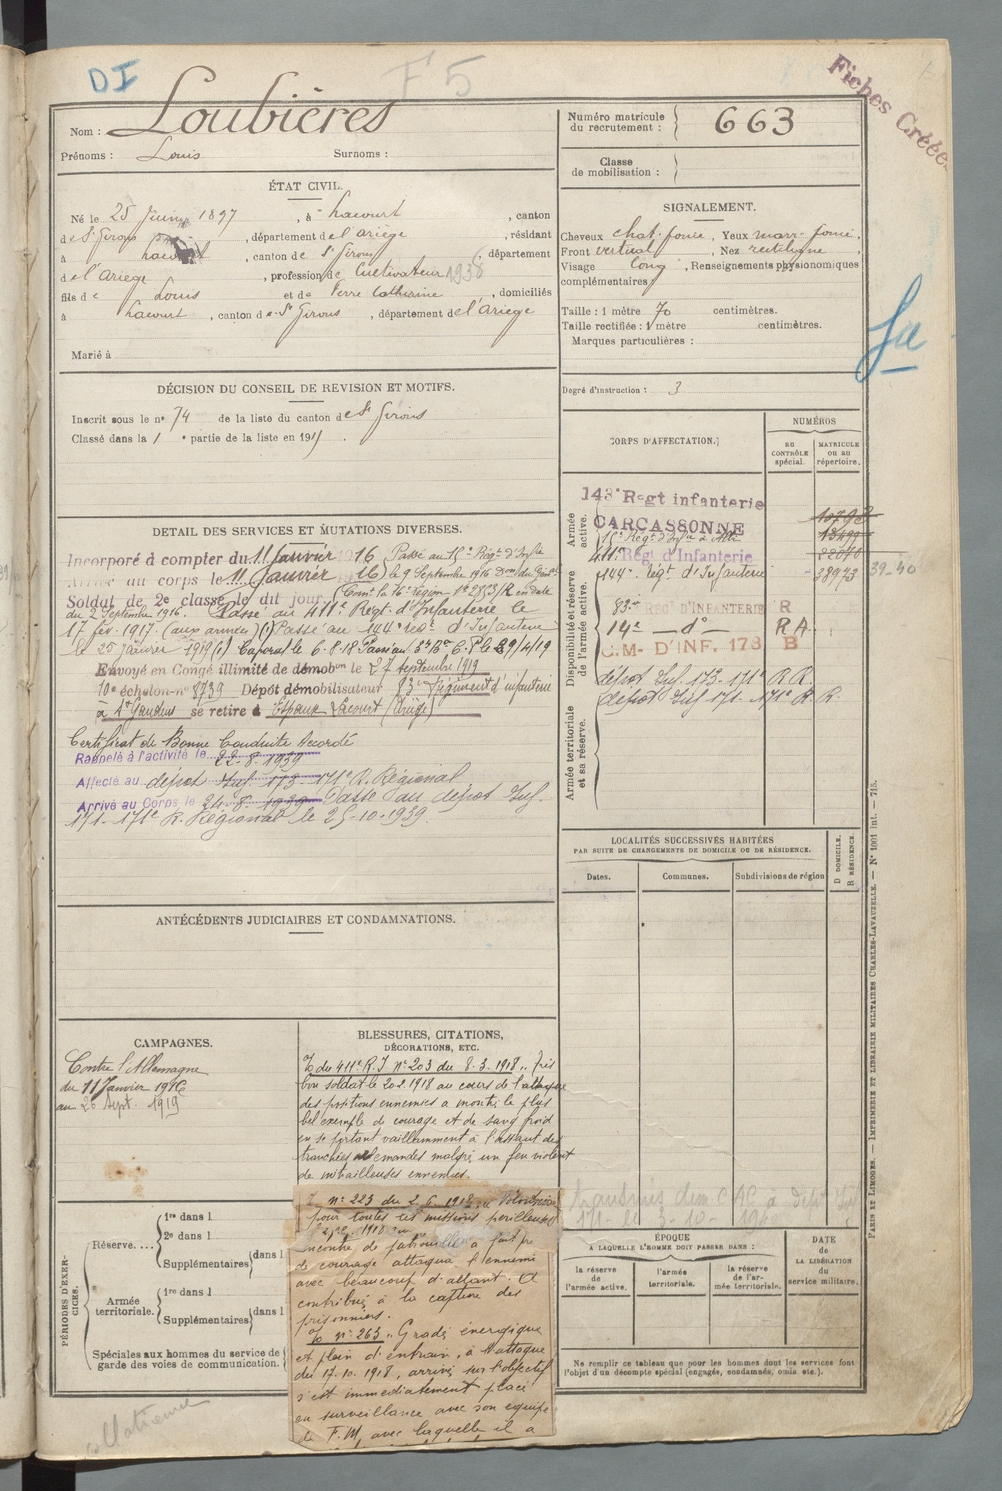 DI
F 5
Fiches Créées
Nom : Loubières
Prénoms : Louis Surnoms :
Numéro matricule
du recrutement : 663
Classe
de mobilisation :
ÉTAT CIVIL.
Né le 25 1897, à Lacourt, canton
de St Girons, département de l'Ariège, résidant
à Lacourt, canton de St Girons, département
de l'Ariège, profession de Cultivateur 1938
fils de Louis et de Catherine, domiciliés
à Lacourt, canton de St Girons, département de l'Ariège
Marié à
SIGNALEMENT.
Cheveux chat. foncé, Yeux marr. foncé,
Front vertical, Nez rectiligne,
Visage long, Renseignements physionomiques
complémentaires
Taille : 1 mètre 70 centimètres.
Taille rectifiée : 1 mètre centimètres.
Marques particulières :
Degré d'instruction : 3
DÉCISION DU CONSEIL DE REVISION ET MOTIFS.
Inscrit sous le n° 74 de la liste du canton de St Girons
Classé dans la 1e partie de la liste en 191
CORPS D'AFFECTATION.
NUMÉROS
AU
CONTRÔLE
spécial.
MATRICULE
OU AU
répertoire.
Armée
active.
143e Regt infanterie
CARCASSONNE
411e Régt d'Infanterie
144e rég't d'Infanterie 38973 39-40
Disponibilité et réserve
de l'armée active.
83e REGt D'INFANTERIE R
14e — do — R A
C.M- D'INF. 173 B
dépôt Inf. 173-171e R.R.
dépôt Inf 171-171e R.R.
Armée territoriale
et sa réserve.
DETAIL DES SERVICES ET MUTATIONS DIVERSES.
Incorporé à compter du 11 Janvier 1916 Passé au 15e Régt d'Inf
Arrivé au corps le 11 Janvier 1916 le 9 Septembre 1916
Soldat de 2e classe le dit jour en date
du 2 Septembre 1916. Passé au 411e Regt d'Infanterie le
17 fév. 1917. (aux armées) Passé au 144e rég. d'Infanterie
le 25 Janvier 1919 Caporal le 6.8.18
Envoyé en Congé illimité de démobon le 27 septembre 1919
10e échelon-no 8739 Dépôt démobilisateur 83e Régiment d'infanterie
à St Gaudens se retire à Lacourt (Ariège)
Certificat de Bonne Conduite Accordé
Rappelé à l'activité le 22-8-1939
Affecté au dépôt Inf. 173-171e R. Régional
Arrivé au Corps le 24-8-1939 Passé au dépôt Inf.
171-171e R. Régional le 25-10-1939.
LOCALITÉS SUCCESSIVES HABITÉES
PAR SUITE DE CHANGEMENTS DE DOMICILE OU DE RÉSIDENCE.
Dates. Communes. Subdivisions de région
D DOMICILE.
R RÉSIDENCE.
ANTÉCÉDENTS JUDICIAIRES ET CONDAMNATIONS.
CAMPAGNES.
Contre l'Allemagne
du 11 Janvier 1916
au 26 Sept. 1919
BLESSURES, CITATIONS,
DÉCORATIONS, ETC.
O du 411e R.I no 203 du 8.3.1918 " Très
bon soldat le 20.2.1918 au cours de l'attaque
des positions ennemies a montré le plus
bel exemple de courage et de sang froid
en se portant vaillamment à l'assaut des
tranchées allemandes malgré un feu violent
de mitrailleuses ennemies.
O no 223 du 2.6.1918. " Volontaire
pour toutes les missions périlleuses
1918
rencontre de patrouilles a fait preuve
de courage attaqua l'ennemi
avec beaucoup d'allant. A
contribué à la capture des
prisonniers.
O no 263 " Gradé énergique
et plein d'entrain, à l'attaque
du 17.10.1918, arrivé sur l'objectif
s'est immédiatement placé
en surveillance avec son équipe
de F.M. avec laquelle il a
à dépôt Inf
171- le 3-10-
PÉRIODES D'EXERCICES.
Réserve....
1re dans l
2e dans l
Supplémentaires dans l
Armée
territoriale.
1re dans l
Supplémentaires dans l
Spéciales aux hommes du service de
garde des voies de communication.
ÉPOQUE
A LAQUELLE L'HOMME DOIT PASSER DANS :
la réserve
de
l'armée active.
l'armée
territoriale.
la réserve
de l'ar-
mée territoriale.
DATE
de
LA LIBÉRATION
du
service militaire.
Ne remplir ce tableau que pour les hommes dont les services font
l'objet d'un décompte spécial (engagés, condamnés, omis etc.).
PARIS ET LIMOGES. — IMPRIMERIE ET LIBRAIRIE MILITAIRES CHARLES-LAVAUZELLE. — N° 1001 int. — 715.